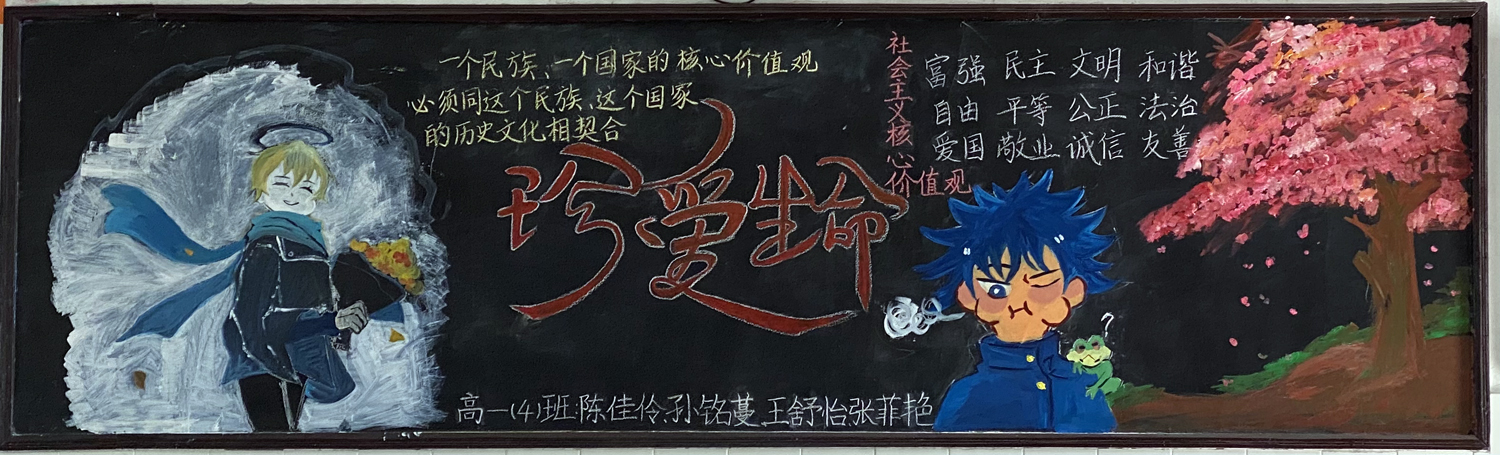 一个民族、一个国家的核心价值观
必须同这个民族、这个国家
的历史文化相契合
珍爱生命
社会主义核心价值观
富强 民主 文明 和谐
自由 平等 公正 法治
爱国 敬业 诚信 友善
?
高一(4)班:陈佳伶.孙铭蔓.王舒怡.张菲艳